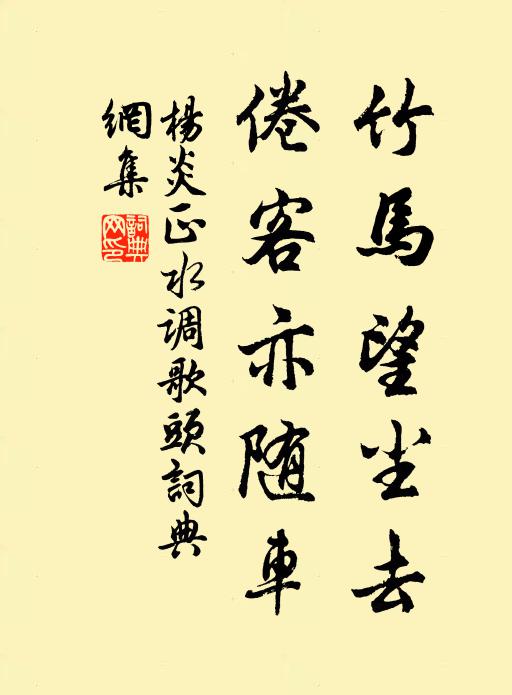 竹馬望尘去
倦客亦随車
楊炎正水调歌頭詞典
網集
詞典网印